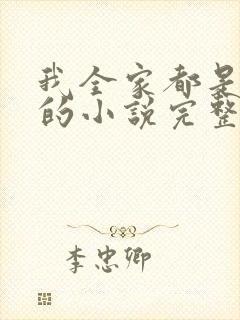 我全家都是
的小说完整
李忠卿